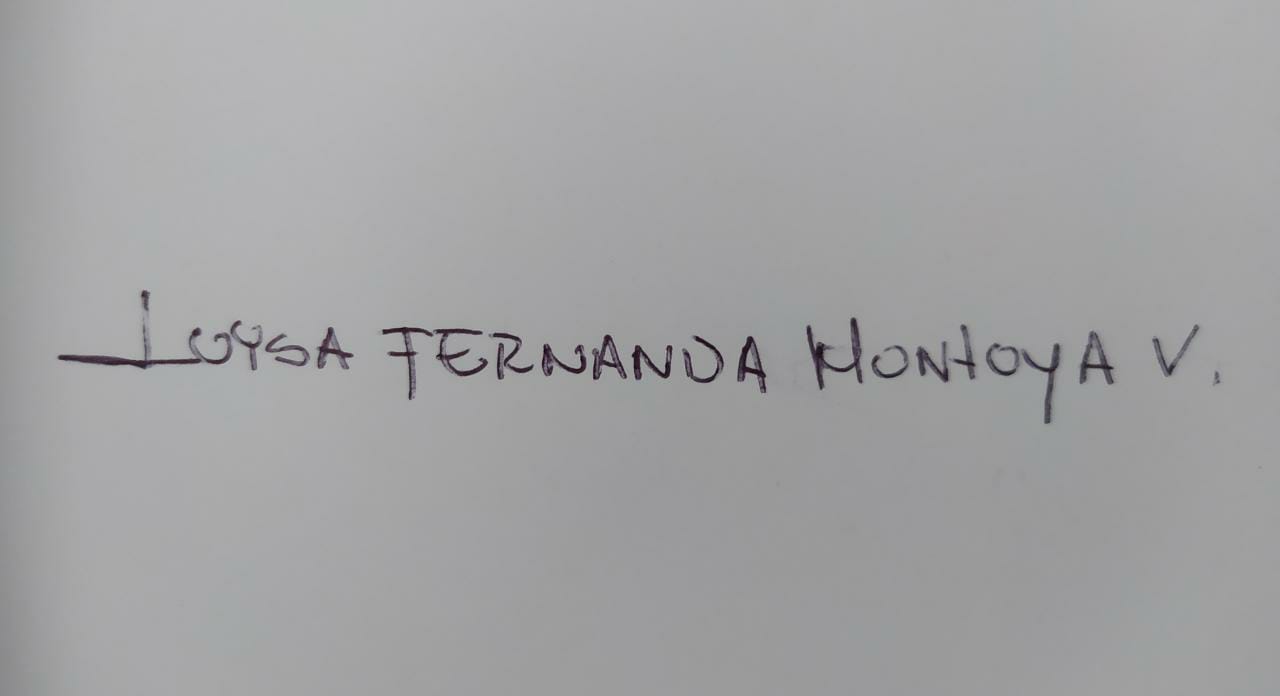 LUYSA FERNANDA MONTOYA V.